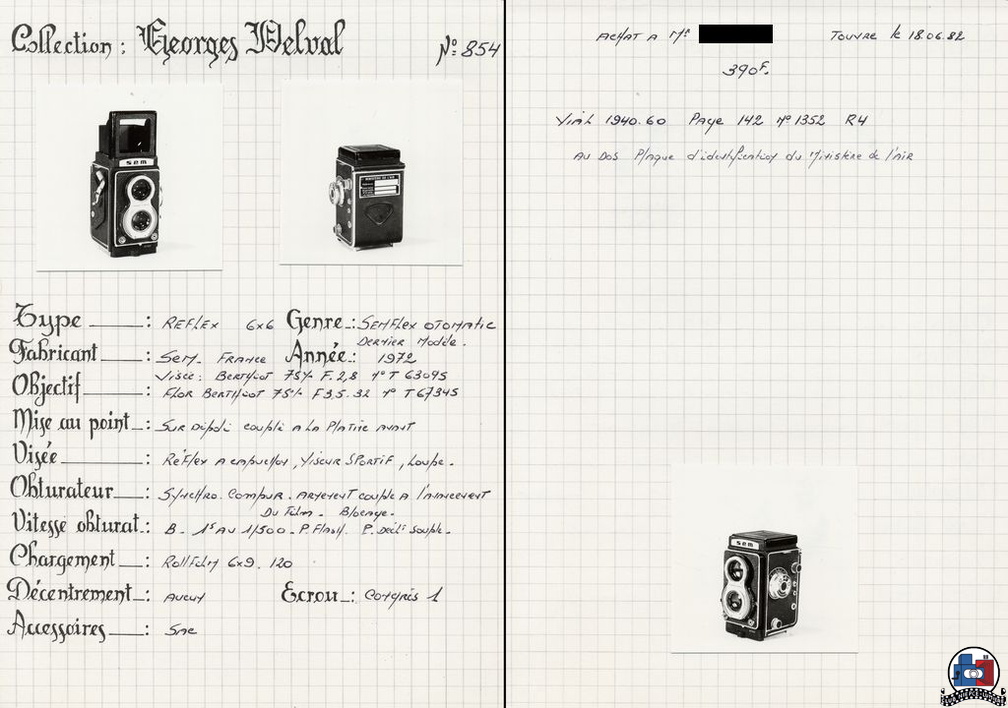 Collection : Georges Delval
N° 854
sem
Type : REFLEX 6x6 Genre : SEMFLEX OTOMATIC
DERNIER MODÈLE.
Fabricant : SEM. FRANCE Année : 1972
VISÉE : BERTHIOT 75% F. 2,8 N° T 63095
Objectif : FLOR BERTHIOT 75% F 3,5. 32 N° T 67345
Mise au point : SUR DÉPOLI COUPLÉ A LA PLATINE AVANT
Visée : RÉFLEX A CAPUCHON, VISEUR SPORTIF, LOUPE.
Obturateur : SYNCHRO. COMPUR. ARMEMENT COUPLÉ A l'AVANCEMENT
DU FILM. BLOCAGE.
Vitesse obturat. : B. 1s AU 1/500. P. FLASH. P. DÉCLt SOUPLE.
Chargement : ROLLFILM 6x9. 120
Décentrement : AUCUN Ecrou : CONGRÈS 1
Accessoires : SAC
ACHAT A Mr TOUVRE le 18.06.82
390F.
VIAL 1940.60 PAGE 142 N° 1352 R4
AU DOS Plaque d'identification du Ministère de l'AIR
sem